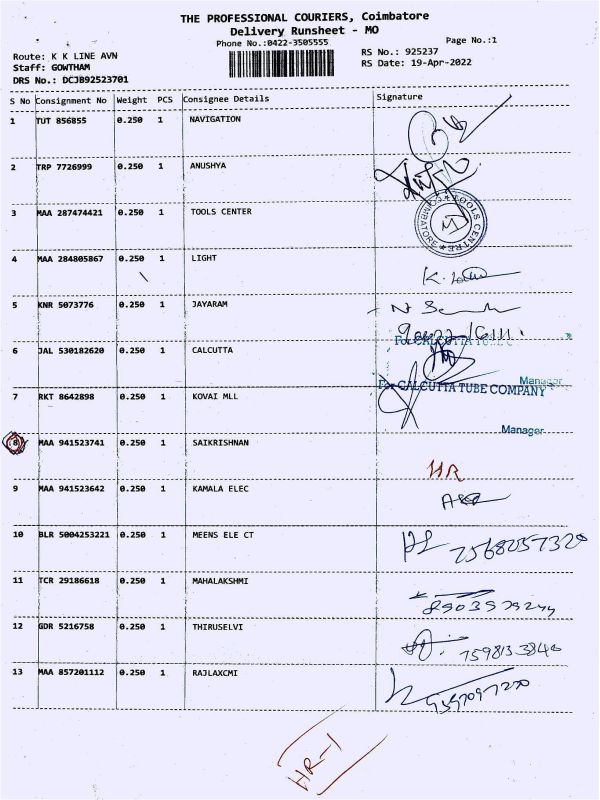 THE PROFESSIONAL COURIERS, Coimbatore
Delivery Runsheet - MO
Phone No.:0422-3505555
Page No.:1
Route: K K LINE AVN
RS No.: 925237
Staff: GOWTHAM
RS Date: 19-Apr-2022
DRS No.: DCJB92523701
S No Consignment No Weight PCS Consignee Details Signature
1 TUT 856855 0.250 1 NAVIGATION
2 TRP 7726999 0.250 1 ANUSHYA
3 MAA 287474421 0.250 1 TOOLS CENTER
TOOLS CENTRE
4 MAA 284805867 0.250 1 LIGHT
5 KNR 5073776 0.250 1 JAYARAM
6 JAL 530182620 0.250 1 CALCUTTA
For CALCUTTA
Manager
7 RKT 8642898 0.250 1 KOVAI MLL
For CALCUTTA TUBE COMPANY
Manager
8 MAA 941523741 0.250 1 SAIKRISHNAN
HR
9 MAA 941523642 0.250 1 KAMALA ELEC
10 BLR 5004253221 0.250 1 MEENS ELE CT
11 TCR 29186618 0.250 1 MAHALAKSHMI
12 GDR 5216758 0.250 1 THIRUSELVI
13 MAA 857201112 0.250 1 RAJLAXCMI
HR-1